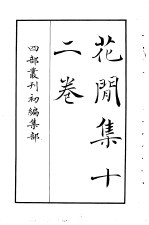 花閒集十
二卷
四部叢刊初編集部